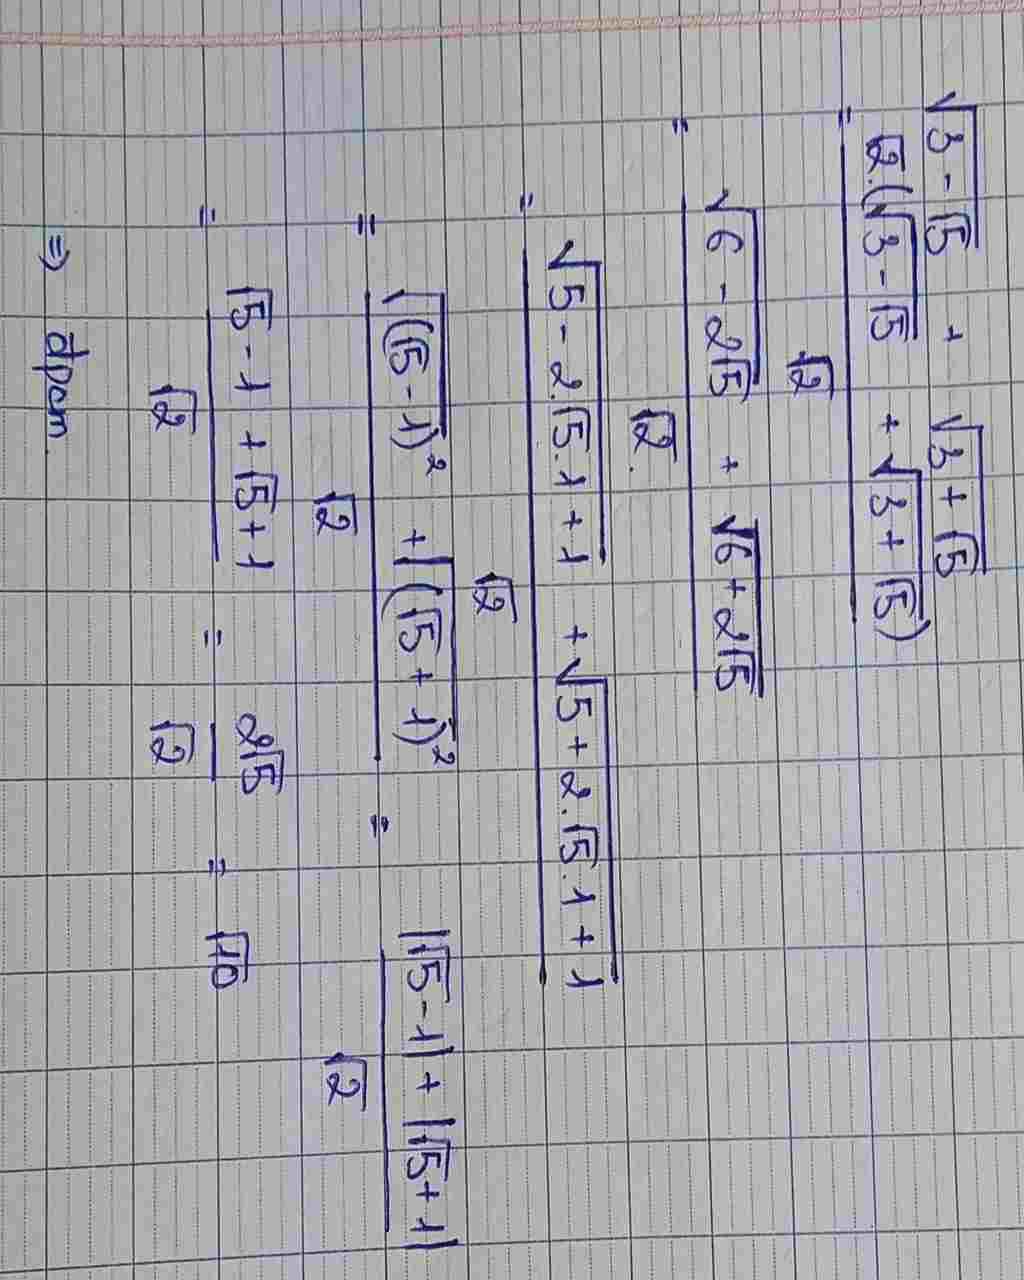 √(3 - √5) + √(3 + √5)
= (√2.(√(3 - √5) + √(3 + √5))) / √2
= (√(6 - 2√5) + √(6 + 2√5)) / √2.
= (√(5 - 2.√5.1 + 1) + √(5 + 2.√5.1 + 1)) / √2
= (√((√5 - 1)²) + √((√5 + 1)²)) / √2 = (|√5 - 1| + |√5 + 1|) / √2
= (√5 - 1 + √5 + 1) / √2 = 2√5 / √2 = √10
⇒ đpcm.